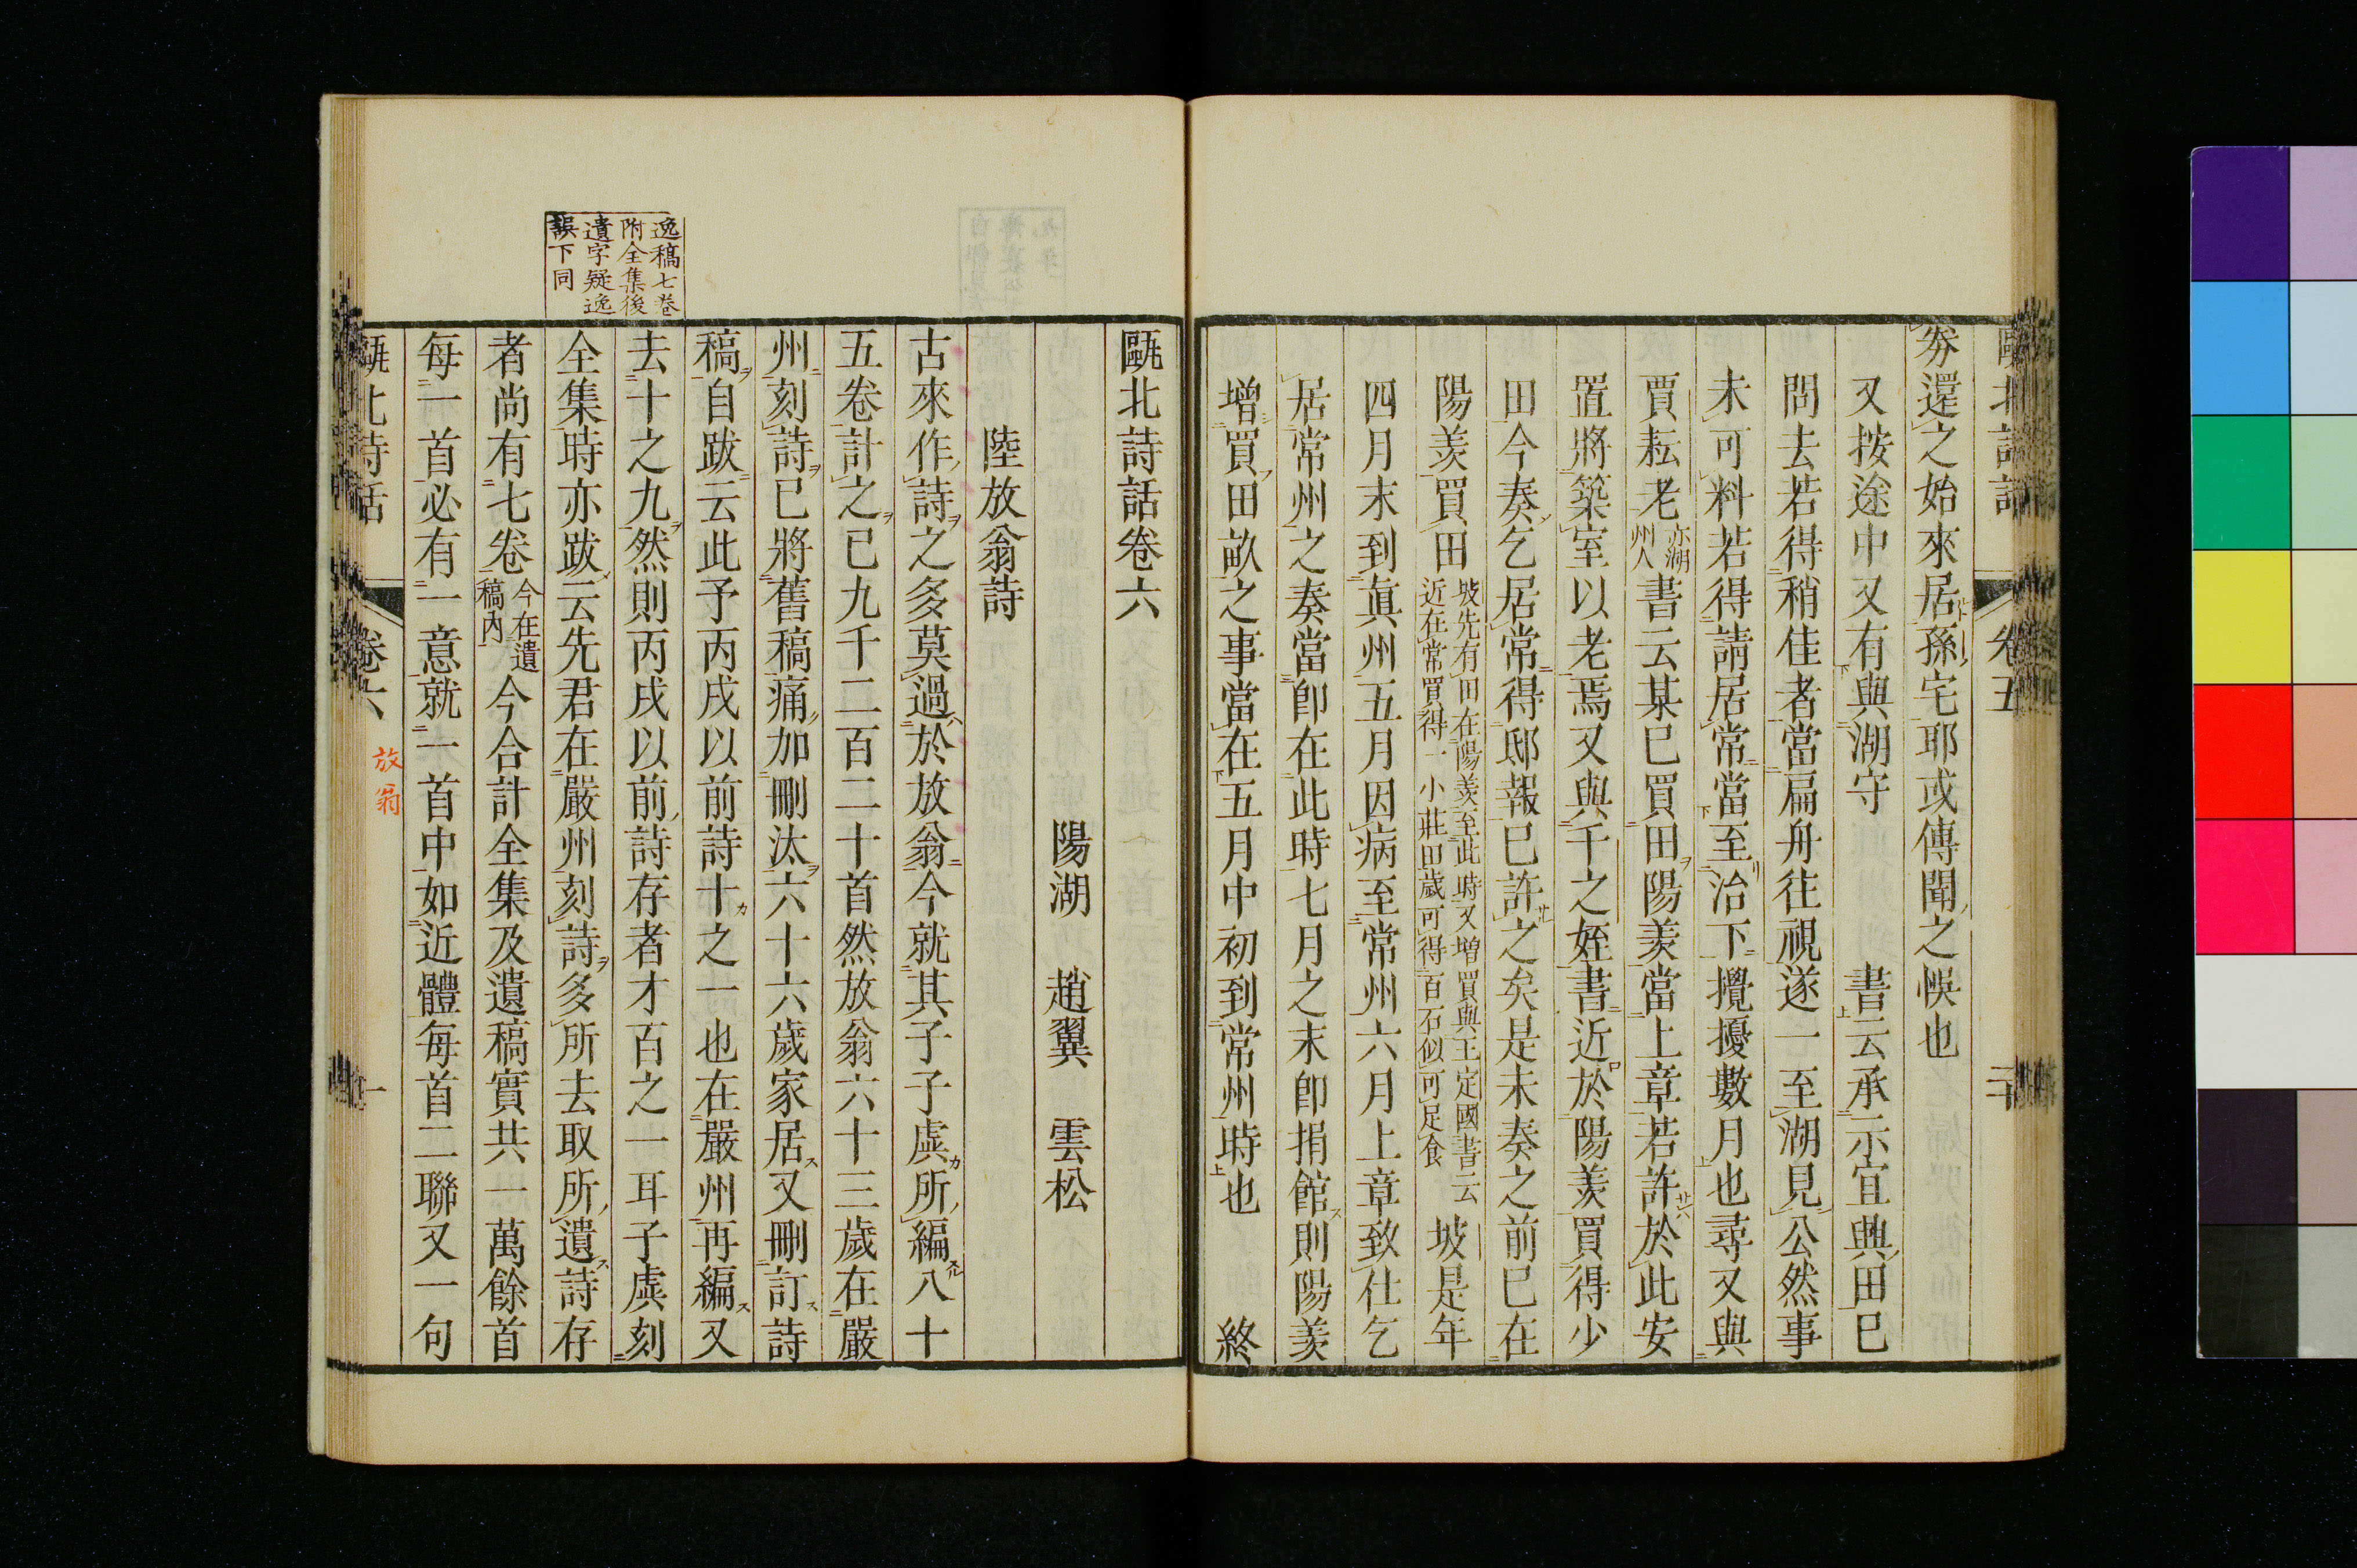 券還之始來居孫宅耶或傳聞之悞也
又按途中又有與湖守　書云承示宜興田已
問去若得稍佳者當扁舟往視遂一至湖見公然事
未可料若得請居常當至治下攪擾數月也尋又與
賈耘老亦湖州人書云某已買田陽羨當上章若許於此安
置將築室以老焉又與千之姪書近於陽羨買得少
田今奏乞居常得邸報已許之矣是未奏之前已在
陽羨買田坡先有田在陽羨至此時又增買與王定國書云近在常買得一小莊田歲可得百石似可足食坡是年
四月末到眞州五月因病至常州六月上章致仕乞
居常州之奏當卽在此時七月之末卽捐館則陽羨
增買田畝之事當在五月中初到常州時也　終
卷五
二十
甌北詩話卷六
陽湖　趙翼　雲松
陸放翁詩
古來作詩之多莫過於放翁今就其子子虡所編八十
五卷計之已九千二百二十首然放翁六十三歲在嚴
州刻詩已將舊稿痛加刪汰六十六歲家居又刪訂詩
稿自跋云此予丙戌以前詩十之一也在嚴州再編又
去十之九然則丙戌以前詩存者才百之一耳子虡刻
全集時亦跋云先君在嚴州刻詩多所去取所遺詩存
者尚有七卷今在遺稿內今合計全集及遺稿實共一萬餘首
每一首必有一意就一首中如近體每首二聯又一句
逸稿七卷
附全集後
遺字疑逸
誤下同
甌北詩話
卷六
放翁
一